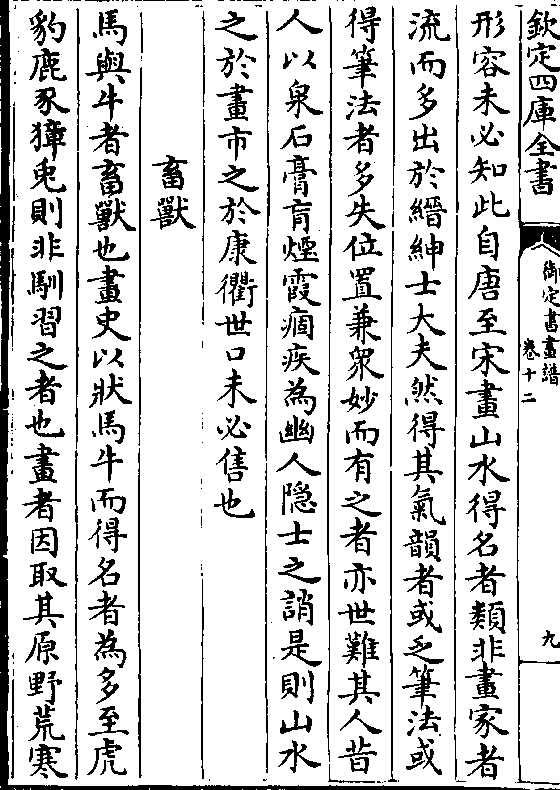 欽定四庫全書
御定書畫譜
卷十二
九
形容未必知此自唐至宋畫山水得名者類非畫家者
流而多出於縉紳士大夫然得其氣韻者或乏筆法或
得筆法者多失位置兼衆妙而有之者亦世難其人昔
人以泉石膏肓煙霞痼疾為幽人隱士之誚是則山水
之於畫市之於康衢世口未必售也
畜獸
馬與牛者畜獸也畫史以狀馬牛而得名者為多至虎
豹鹿豕獐兎則非馴習之者也畫者因取其原野荒寒